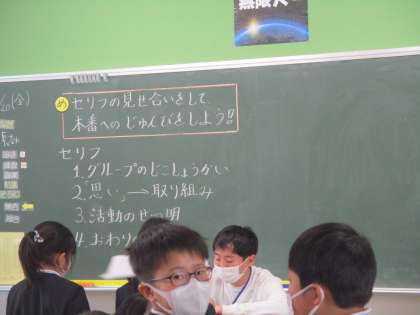 無限大
(金)
め セリフの見せ合いをして、
本番へのじゅんびをしよう!!
セリフ
1.グループのじこしょうかい
2.「思い」→取り組み
3.活動のせつ明
4.おわり